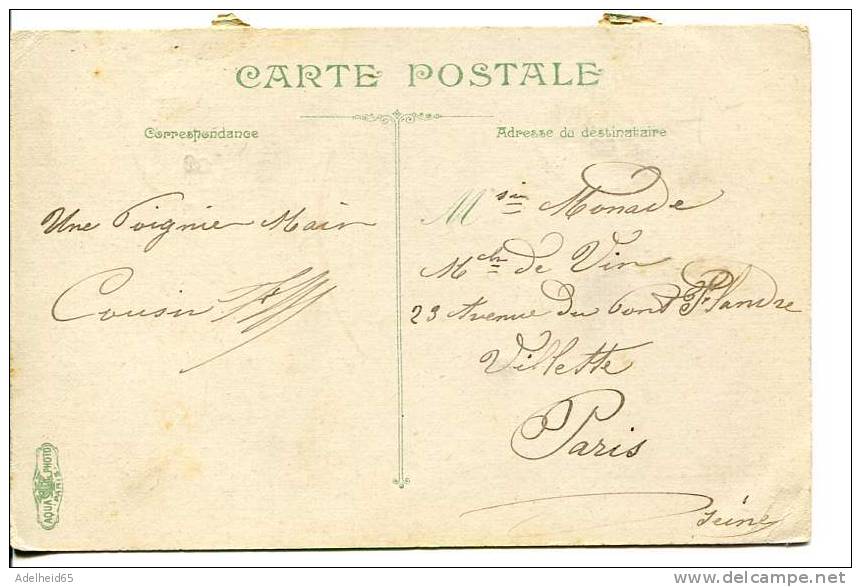 CARTE POSTALE
Correspondance
Adresse du destinataire
Une Poignie Main
Cousin
Msin Monade
Mch de Vin
23 Avenue du Pont Flandre
Villette
Paris
Seine
AQUA PHOTO
PARIS
Adelheid65
delcampe.net